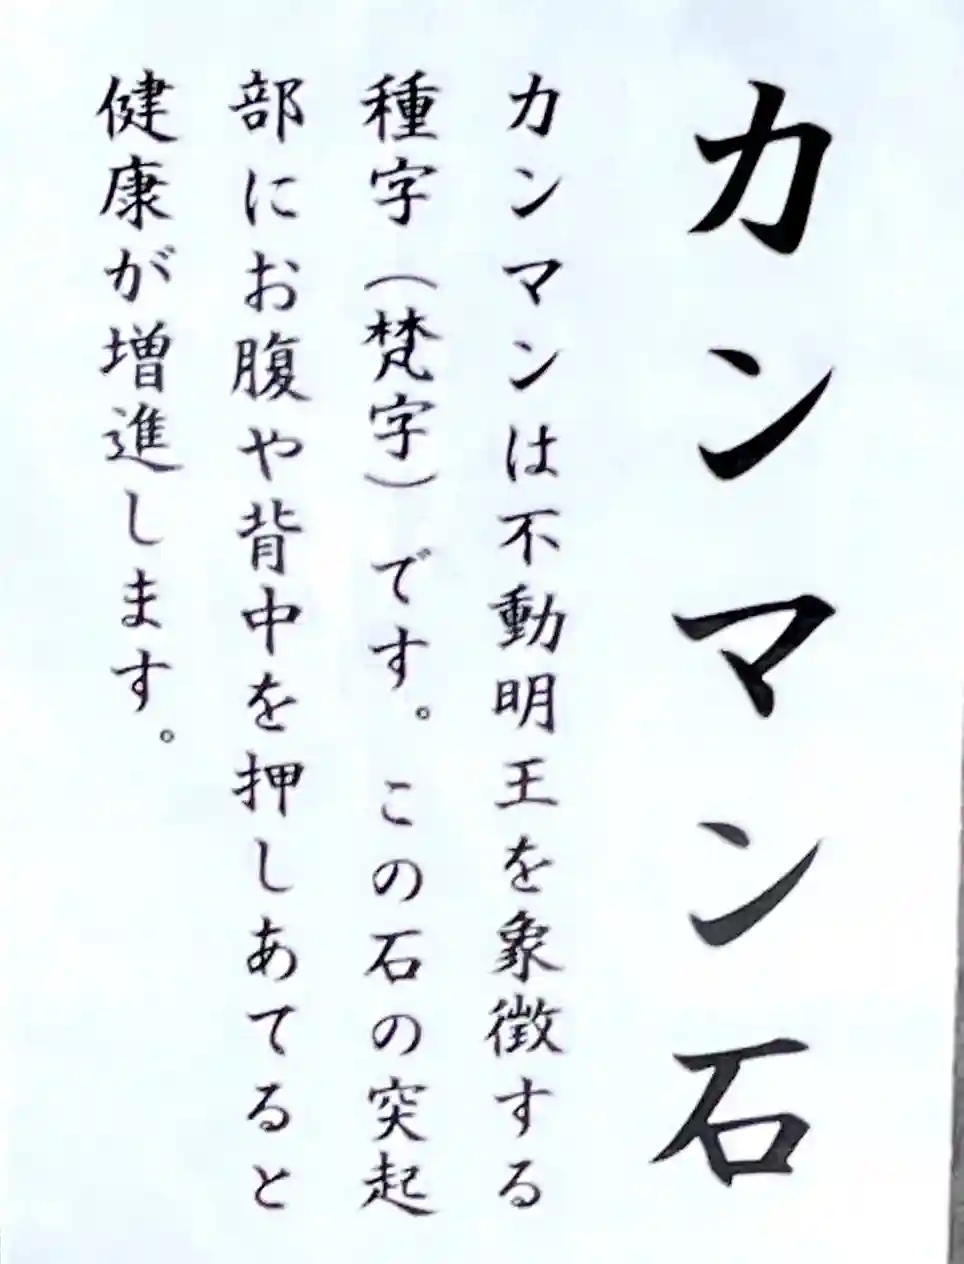 カンマン石
カンマンは不動明王を象徴する
種字(梵字)です。この石の突起
部にお腹や背中を押しあてると
健康が増進します。